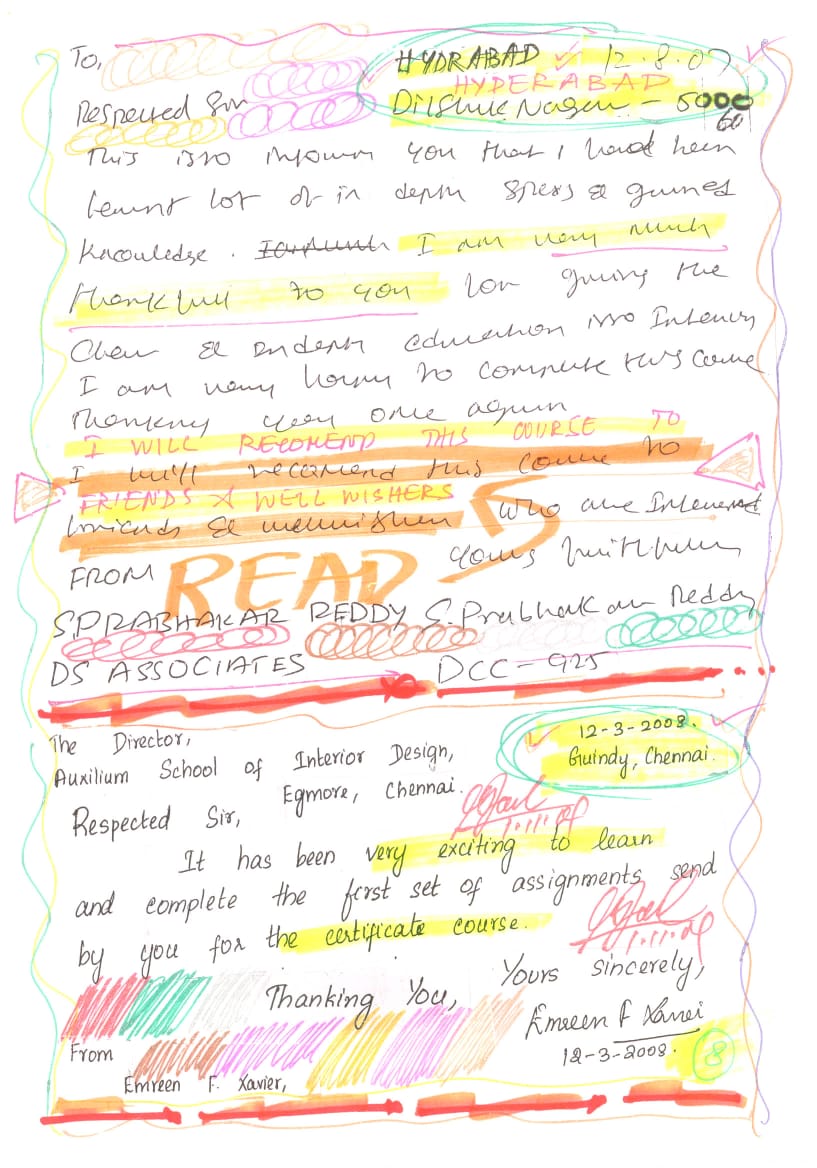 To,
HYDRABAD 12.8.07
HYDERABAD
Respected Sir
Dilshuk Nagar - 5000
60
This is to inform you that I have been
learnt lot of in depth & gained
knowledge. I am very much
thankful to you for giving the
Clear & indepth education into Interiors
I am very happy to complete this course
Thanking you once again
I WILL RECOMEND THIS COURSE TO
I will recomend this course to
FRIENDS & WELL WISHERS
friends & wellwishers who are Interested
READ
yours faithfully
FROM
S.PRABHAKAR REDDY S.Prabhakar Reddy
DS ASSOCIATES DCC-925
The Director,
12-3-2008.
Auxilium School of Interior Design,
Guindy, Chennai.
Egmore, Chennai.
Respected Sir,
It has been very exciting to learn
and complete the first set of assignments send
by you for the certificate course.
Yours sincerely,
Thanking You,
Emreen F Xavier
From
12-3-2008.
8
Emreen F. Xavier,